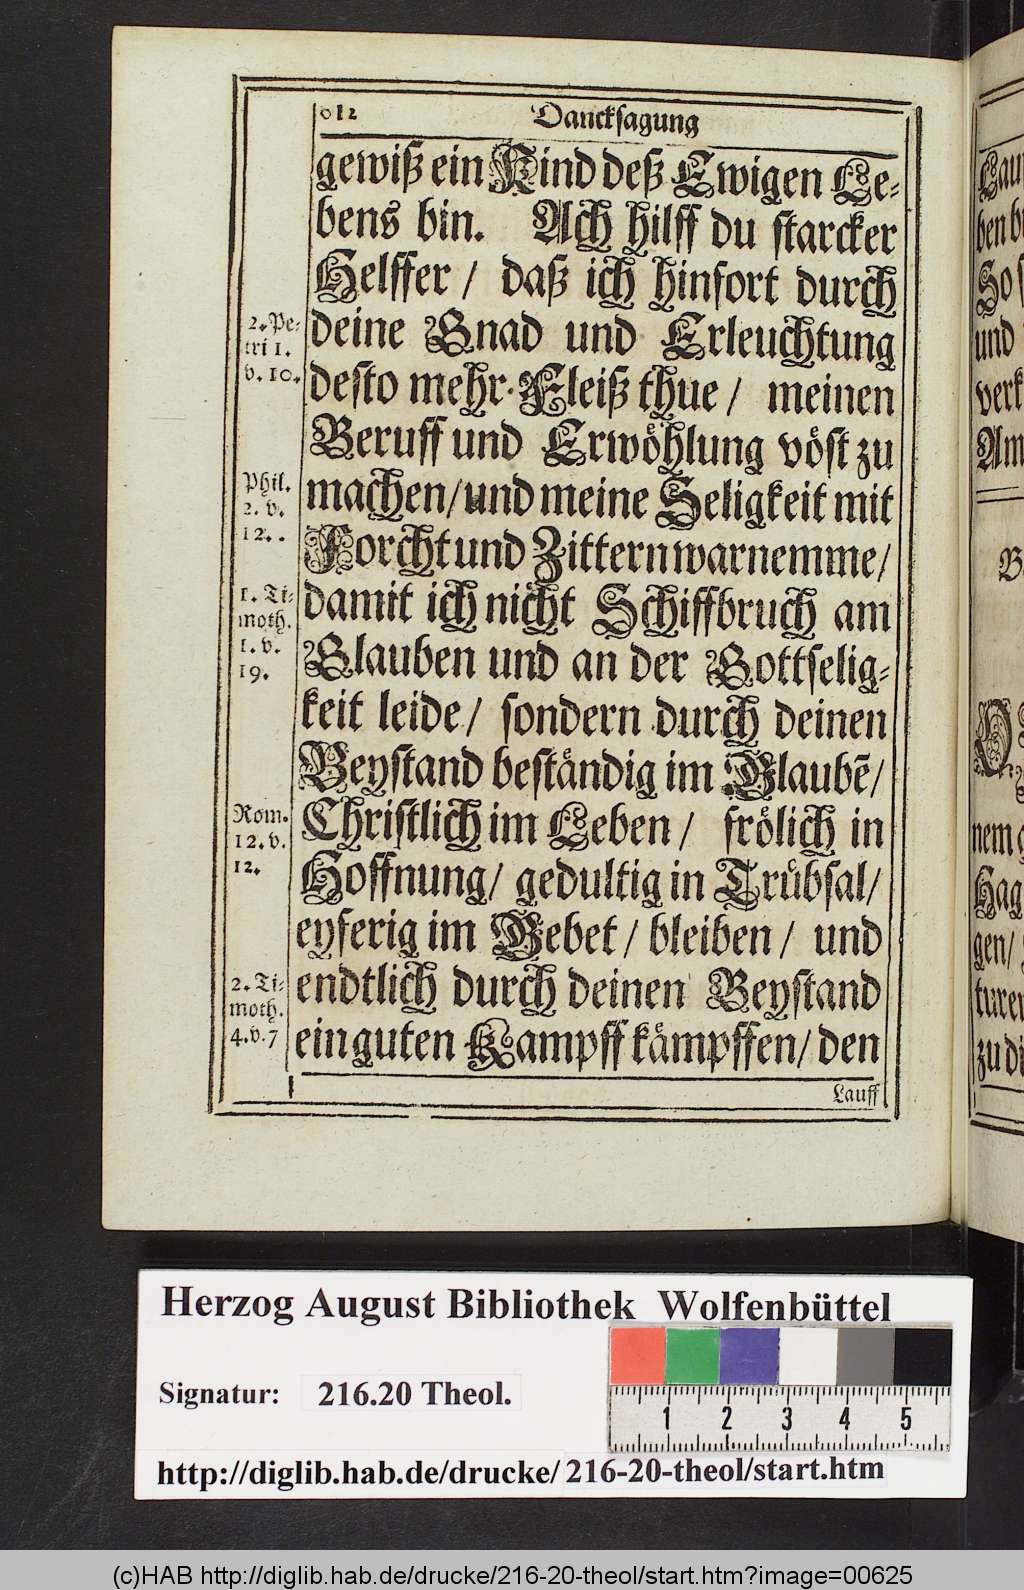 612 Dancksagung
gewiß ein Kind deß Ewigen Le-
bens bin. Ach hilff du starcker
Helffer / daß ich hinfort durch
deine Gnad und Erleuchtung
desto mehr Fleiß thue / meinen
Beruff und Erwöhlung vöst zu
machen / und meine Seligkeit mit
Forcht und Zittern warnemme /
damit ich nicht Schiffbruch am
Glauben und an der Gottselig-
keit leide / sondern durch deinen
Beystand beständig im Glaubē /
Christlich im Leben / frölich in
Hoffnung / gedultig in Trübsal /
eyferig im Gebet / bleiben / und
endtlich durch deinen Beystand
ein guten Kampff kämpffen / den
Lauff
2. Pe-
tri 1.
v. 10.
Phil.
2. v.
12.
1. Ti-
moth.
1. v.
19.
Rom.
12. v.
12.
2. Ti-
moth.
4. v. 7
ben
So
und
verk
Am
nem
Hag
gen /
turen
zu
Herzog August Bibliothek Wolfenbüttel
Signatur: 216.20 Theol.
1 2 3 4 5
http://diglib.hab.de/drucke/216-20-theol/start.htm
(c)HAB http://diglib.hab.de/drucke/216-20-theol/start.htm?image=00625